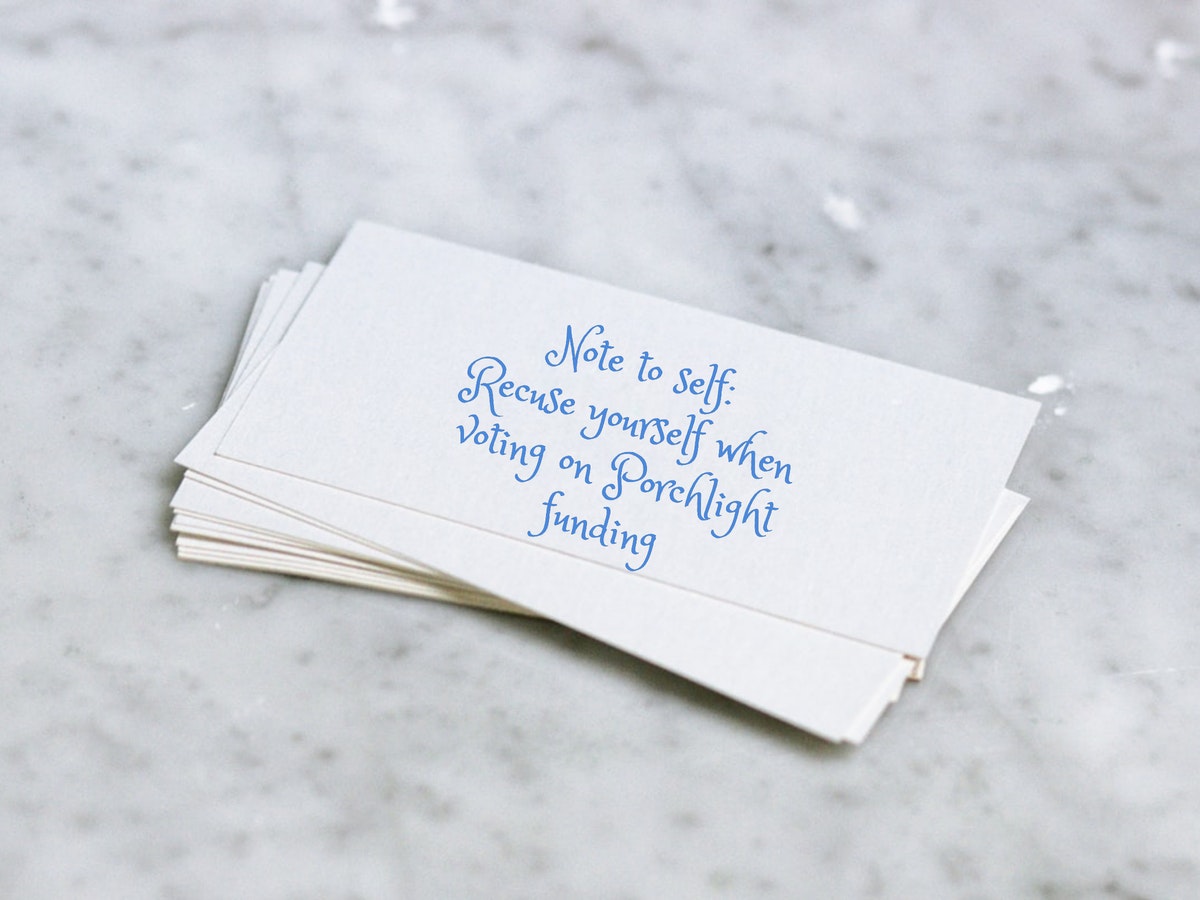 Note to self:
Recuse yourself when
voting on Porchlight
funding